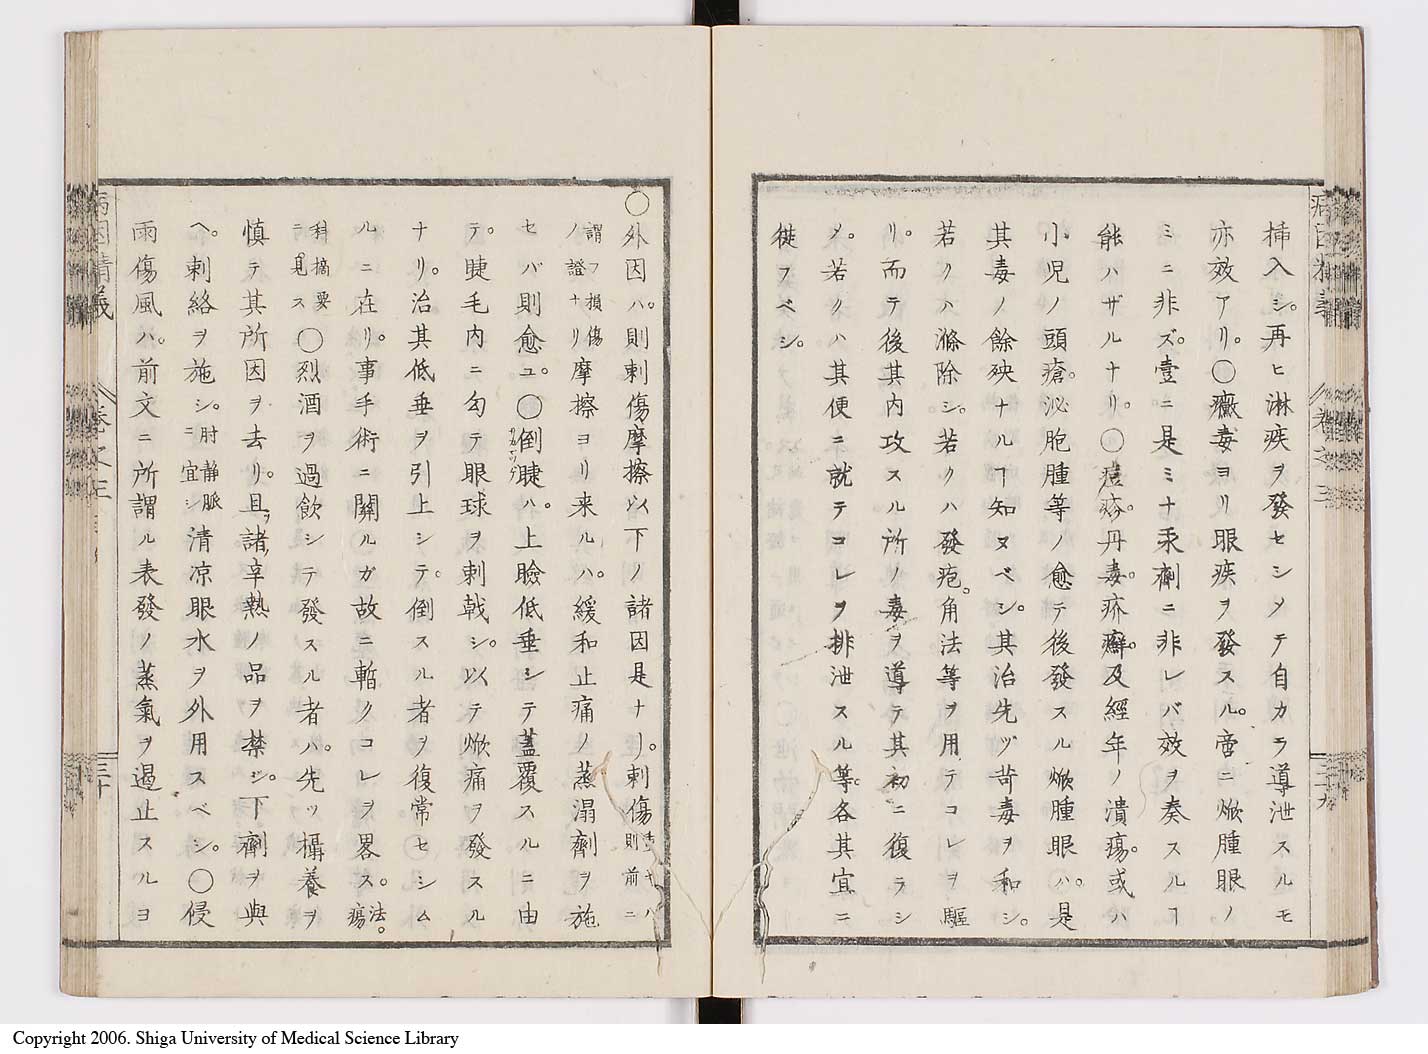 挿入シ。再ヒ淋疾ヲ發セシメテ自カラ導泄スルモ
亦效アリ。〇黴毒ヨリ眼疾ヲ發スル。啻ニ焮腫眼ノ
ミニ非ズ。壹ニ是ミナ汞劑ニ非レバ效ヲ奏スルヿ
能ハザルナリ。〇痘疹。丹毒。疥癬。及経年ノ潰瘍。或ハ
小児ノ頭瘡。泌胞腫等ノ愈テ後發スル焮腫眼ハ。是
其毒ノ餘殃ナルヿ知ヌベシ。其治先ヅ苛毒ヲ和シ。
若クハ滌除シ。若クハ發疱。角法等ヲ用テコレヲ驅
リ。而テ後其内攻スル所ノ毒ヲ導テ其初ニ復ラシ
メ。若クハ其便ニ就テコレヲ排泄スル等。各其宜ニ
従フベシ。
病因精義
卷之三
二十九
〇外因ハ。則刺傷摩擦以下ノ諸因是ナリ。刺傷則前ニ
謂フ損傷ノ證ナリ摩擦ヨリ来ルハ。緩和止痛ノ蒸溻劑ヲ施
セバ則愈ユ。〇倒睫ハ。上瞼低垂シテ蓋覆スルニ由
テ。睫毛内ニ勾テ眼球ヲ刺戟シ。以テ焮痛ヲ發スル
ナリ。治其低垂ヲ引上シテ。倒スル者ヲ復常セシム
ルニ在リ。事手術ニ關ルガ故ニ暫クコレヲ畧ス。法瘍
科摘要ニ見ス〇烈酒ヲ過飲シテ發スル者ハ。先ッ攝養ヲ
慎テ其所因ヲ去リ。且ツ諸辛熱ノ品ヲ禁シ。下劑ヲ與
ヘ。刺絡ヲ施シ。肘静脈ニ宜シ清凉眼水ヲ外用スベシ。〇侵
雨傷風ハ。前文ニ所謂ル表發ノ蒸氣ヲ遏止スルヨ
病因精義
卷之三
三十
Copyright 2006. Shiga University of Medical Science Library